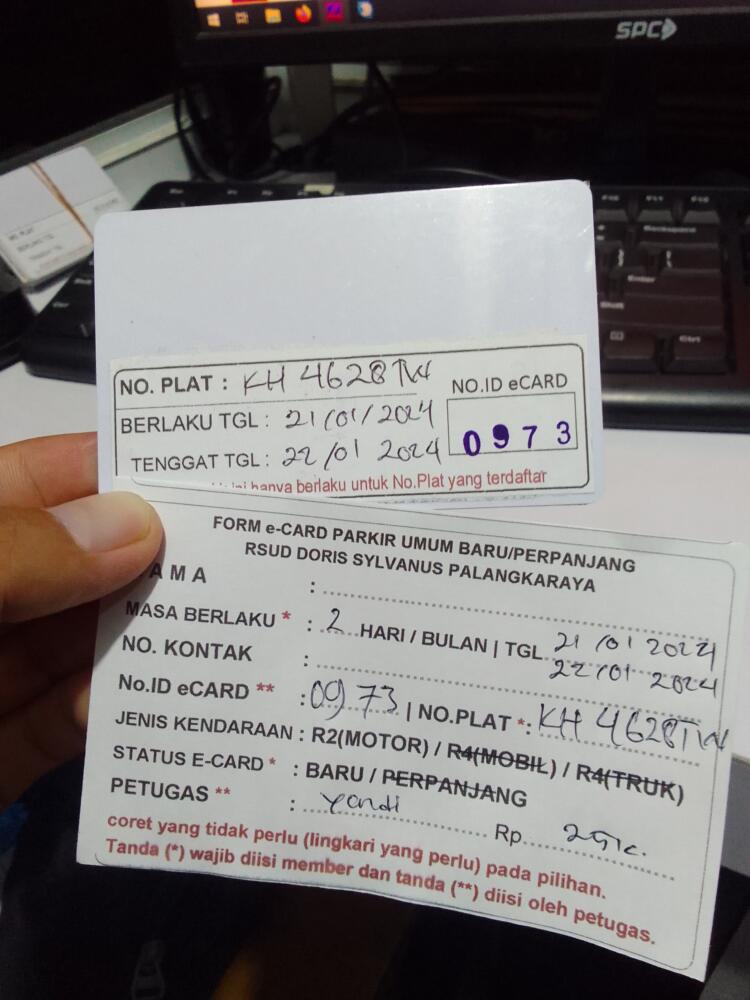 SPC
Backspace
Enter
Shift
Ctrl
NO. PLAT : KH 4628 TW
NO.ID eCARD
BERLAKU TGL : 21/01/2024
0973
TENGGAT TGL : 22/01 2024
ini hanya berlaku untuk No.Plat yang terdaftar
FORM e-CARD PARKIR UMUM BARU/PERPANJANG
RSUD DORIS SYLVANUS PALANGKARAYA
AMA :
MASA BERLAKU * : 2 HARI / BULAN | TGL 21/01 2024
22/01 2024
NO. KONTAK :
No.ID eCARD ** : 0973 | NO.PLAT *: KH 4628 TW
JENIS KENDARAAN : R2(MOTOR) / R4(MOBIL) / R4(TRUK)
STATUS E-CARD * : BARU / PERPANJANG
PETUGAS ** : yandi Rp
coret yang tidak perlu (lingkari yang perlu) pada pilihan.
Tanda (*) wajib diisi member dan tanda (**) diisi oleh petugas.